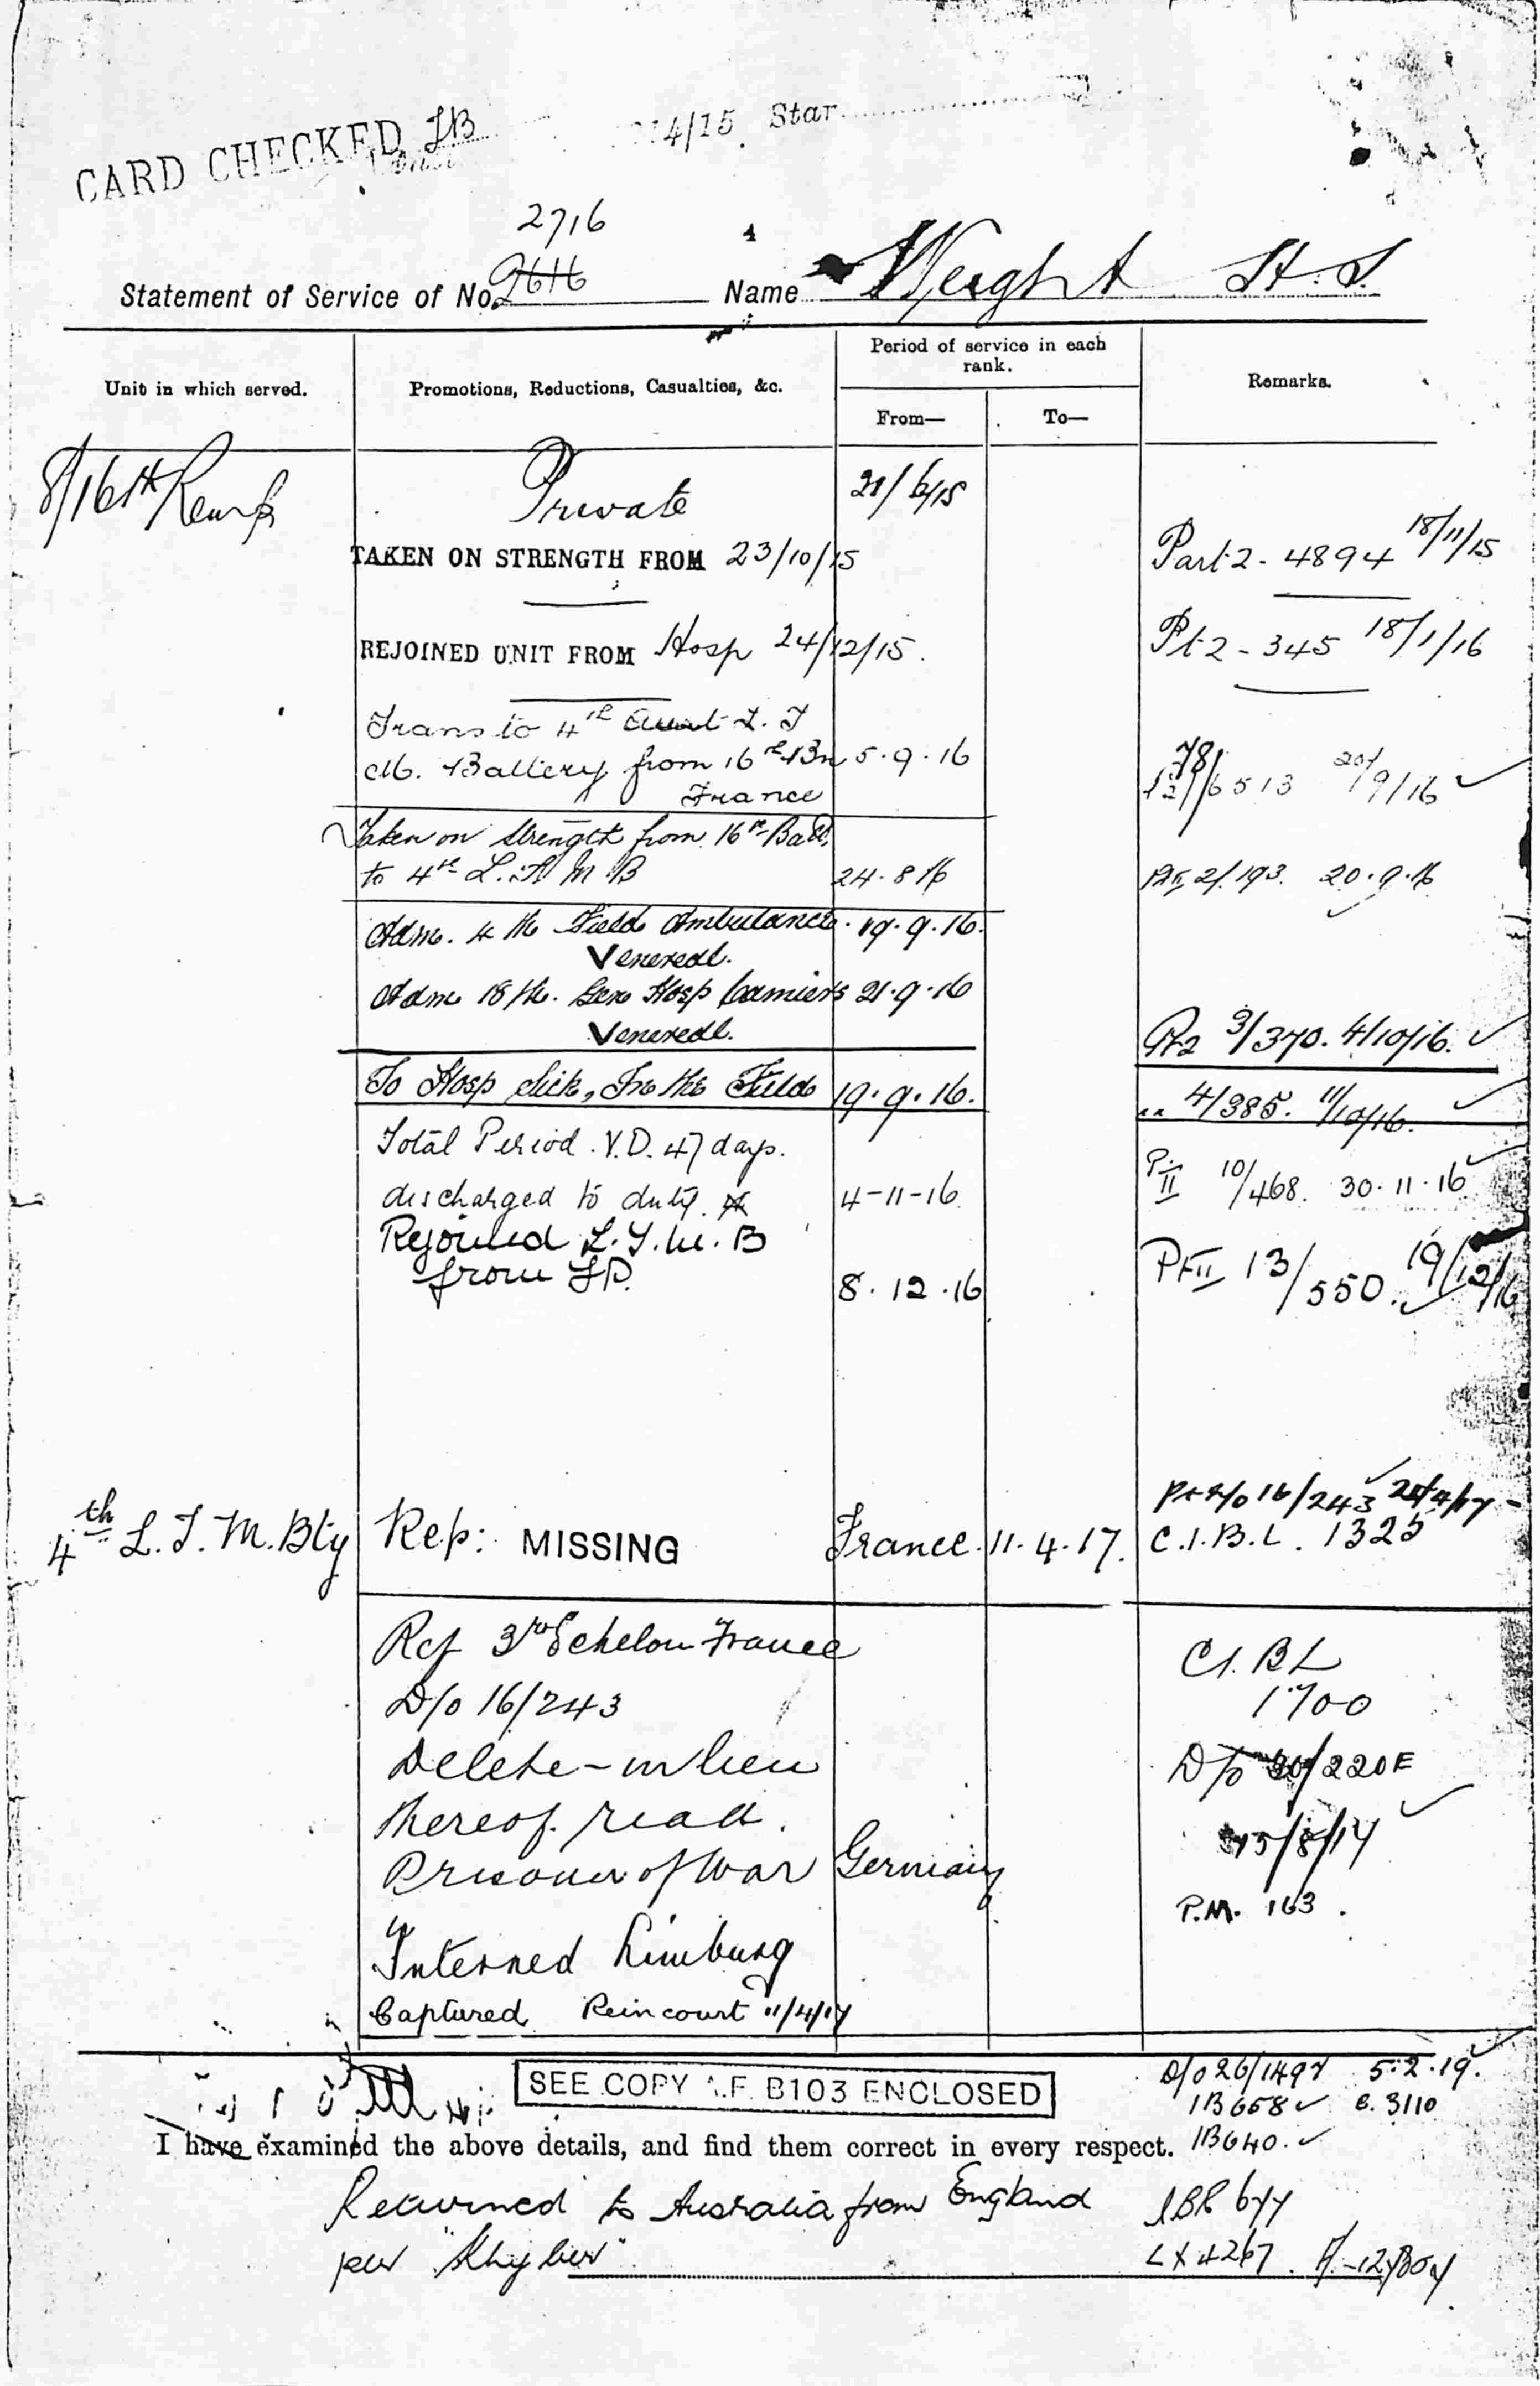 CARD CHECKED
14/15 Star
2716
4
Statement of Service of No. 2616 Name Weight H. S.
Unit in which served.
Promotions, Reductions, Casualties, &c.
Period of service in each rank.
From—
To—
Remarks.
8/16th Reinfs
Private 21/6/15
TAKEN ON STRENGTH FROM 23/10/15
Part 2 - 4894 18/11/15
REJOINED UNIT FROM Hosp 24/12/15.
Pt 2 - 345 18/1/16
Trans to 4th L. T
M. Battery from 16th Bn 5.9.16
France
6513 20/9/16
Taken on strength from 16th Batt.
to 4th L. T. M B 24.8.16
Pt II 2/193. 20.9.16
Adm. 4th Field Ambulance. 19.9.16.
Venereal.
Adm 18th. Gen Hosp Camiers 21.9.16
Venereal.
Pt 2 3/370. 4/10/16.
To Hosp Sick, In the Field 19.9.16.
.. 4/385. 11/10/16.
Total Period. V.D. 47 days.
discharged to duty. 4-11-16
Pt II 10/468. 30.11.16
Rejoined L.T.M.B
from 8.12.16
Pt II 13/550. 19/12/16
4th L.T.M. Bty Rep: MISSING France. 11.4.17.
16/243
C.I.B.L. 1325
Ref 3rd Echelon France
D/o 16/243
Delete - in lieu
thereof. read.
Prisoner of War Germany
Interned Limburg
Captured Reincourt 11/4/17
C.I. B L
1700
D/o 30/220E
15/8/17
P.M. 163.
SEE COPY A.F. B103 ENCLOSED
D/o 26/1497 5.2.19.
1B658 e. 3110
I have examined the above details, and find them correct in every respect. 1B640.
Returned to Australia from England
per "Khyber"
LX4267